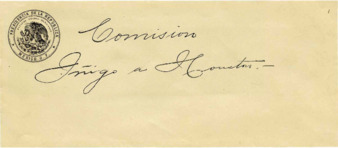 PRESIDENCIA DE LA REPUBLICA
MEXICO D.F.
Comision
Iñigo a Houston.—